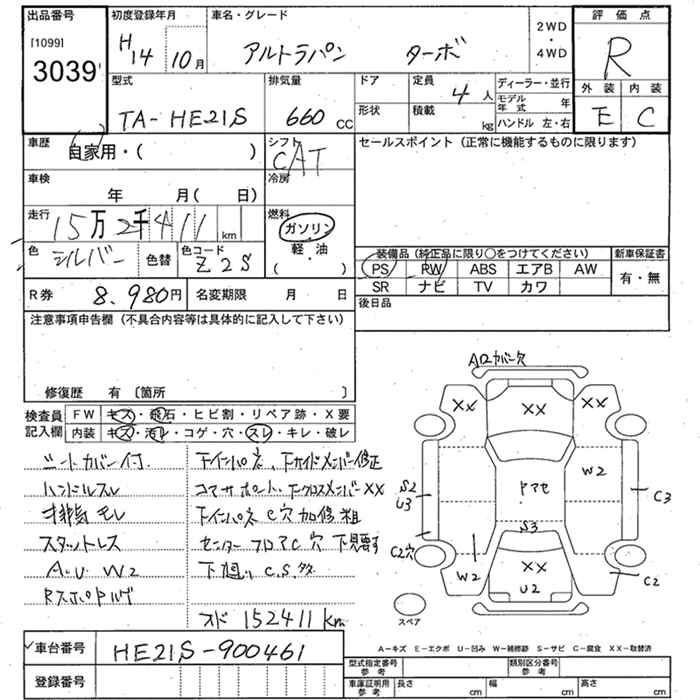 出品番号
[1099]
3039
初度登録年月
H14 10月
車名・グレード
アルトラパン ターボ
2WD
・
4WD
評価点
R
外装 内装
E C
型式
TA-HE21S
排気量
660 CC
ドア
定員
4人
形状
積載
kg
ディーラー・並行
モデル年式 年
ハンドル 左・右
車歴
自家用・( )
シフト
CAT
セールスポイント (正常に機能するものに限ります)
車検
年 月( 日)
冷房
走行
15万2千411 km
燃料
ガソリン
軽・油
( )
色
シルバー
色替
色コード
Z2S
装備品 (純正品に限り○をつけてください)
新車保証書
PS RW ABS エアB AW
有・無
SR ナビ TV カワ
R券
8,980円
名変期限 月 日
後日品
注意事項申告欄 (不具合内容等は具体的に記入して下さい)
修復歴 有 〔箇所 〕
検査員記入欄
FW キズ・飛石・ヒビ割・リペア跡・X要
内装 キズ・汚れ・コゲ・穴・スレ・キレ・破レ
シートカバー付
ハンドルスレ
排気モレ
スタットレス
A.U W2
下インパネ、下サイドメンバー修正
コアサポート、下クロスメンバーXX
下インパネ C穴 加修粗
センターフロアC穴 下見要す
下廻り C.S.多
スド 152411 km
AピカバーR欠
XX
XX
XX
W2
ヤアセ
S2
U3
C3
S3
C2穴
W2
XX
U2
C2
スペア
A-キズ E-エクボ U-凹み W-補修跡 S-サビ C-腐食 XX-取替済
車台番号
HE21S-900461
登録番号
型式指定番号
参考
類別区分番号
参考
車庫証明用
参考
長さ cm
幅 cm
高さ cm